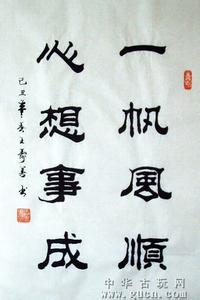 一帆風順
心想事成
己丑年
書
中华古玩网
www.gucn.com